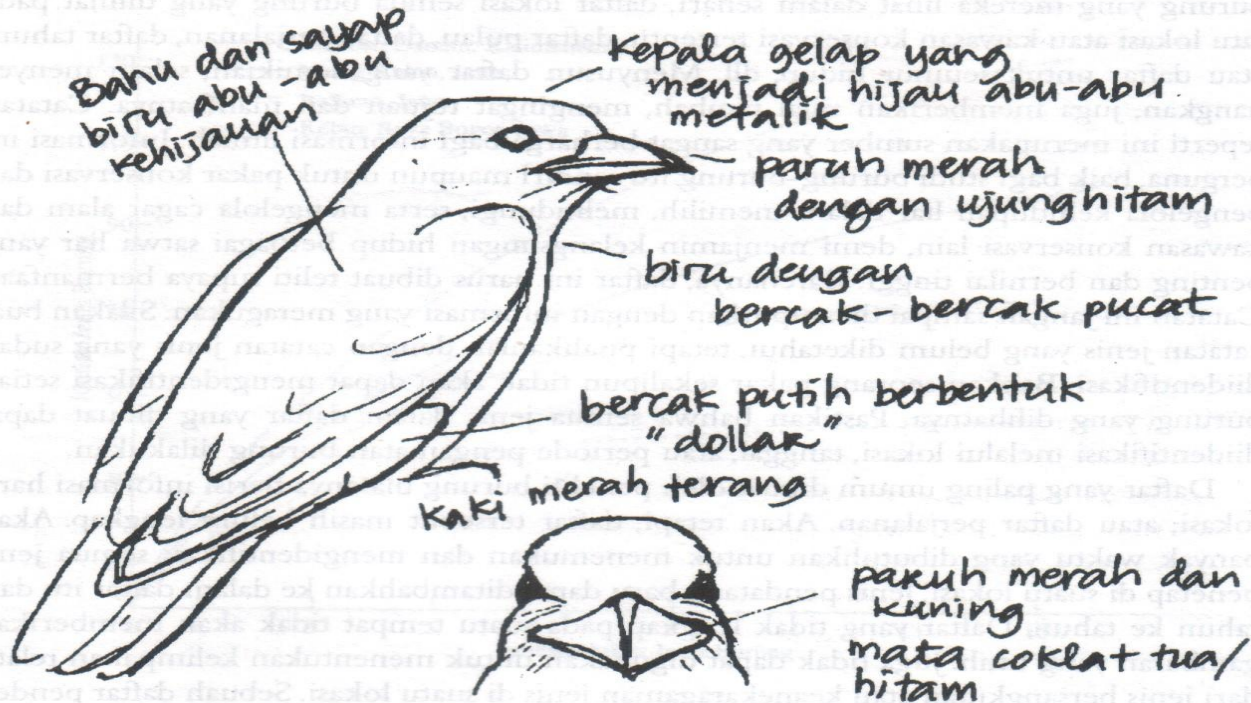 Bahu dan sayap
biru abu abu
kehijauan
Kepala gelap yang
menjadi hijau abu-abu
metalik
paruh merah
dengan ujung hitam
biru dengan
bercak-bercak pucat
bercak putih berbentuk
"dollar"
Kaki merah terang
paruh merah dan
kuning
mata coklat tua/
hitam